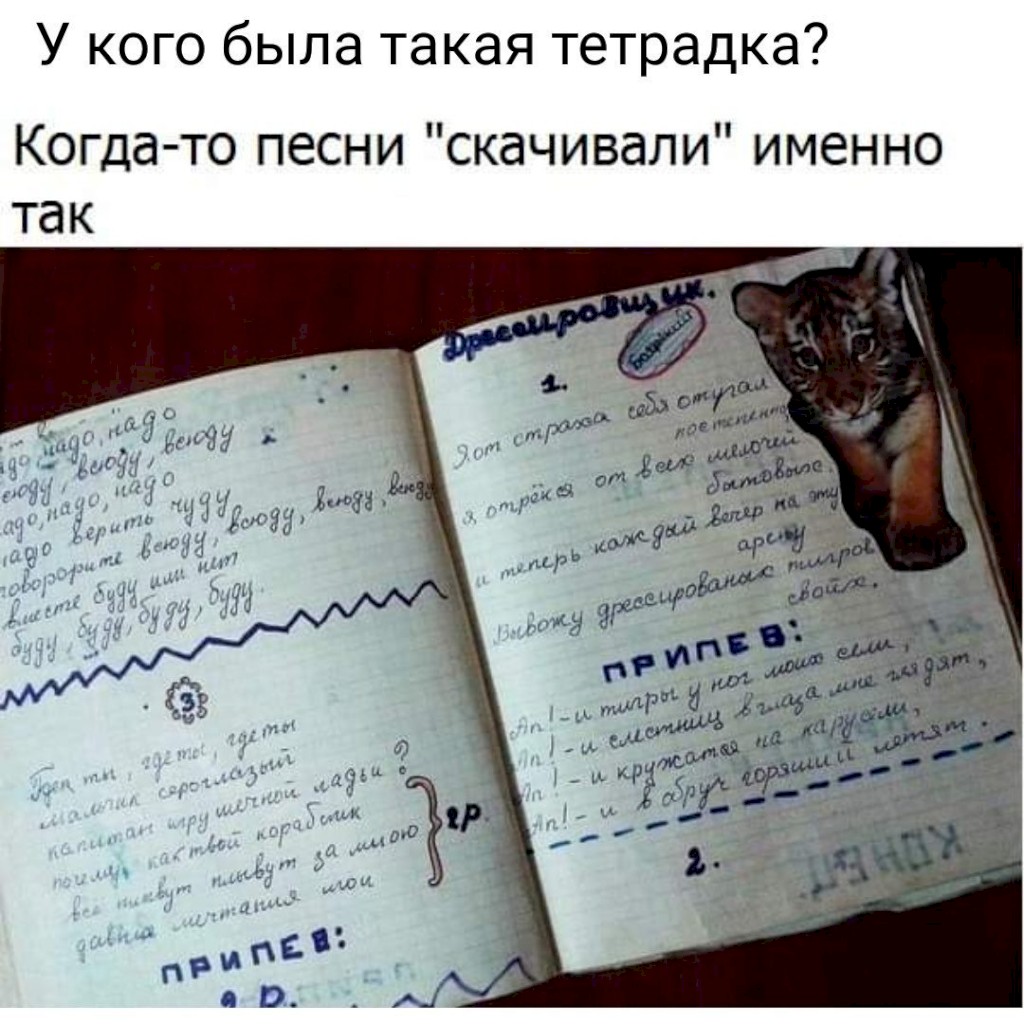 У кого была такая тетрадка?
Когда-то песни "скачивали" именно
так
надо, надо
всюду, всюду
надо, надо
надо верить чуду
всюду, всюду, всюду
вместе буду или нет
буду, буду, буду, буду.
3
где ты, где ты
мальчик сероглазый
капитан игрушечной ладьи?
почему, как твой кораблик
всё плывут плывут за мною
давние мечтания мои
2р.
ПРИПЕВ:
2 р.
Дрессировщик.
Боярский
1.
Я от страха себя отучал
постепенно
я отрёкся от всех мелочей
бытовых.
и теперь каждый вечер на эту
арену
Вывожу дрессированых тигров
своих.
ПРИПЕВ:
Ап! - и тигры у ног моих сели,
Ап! - и с лестниц в глаза мне глядят,
Ап! - и кружатся на карусели,
Ап! - и в обруч горящий летят.
2.
КОНЕЦ